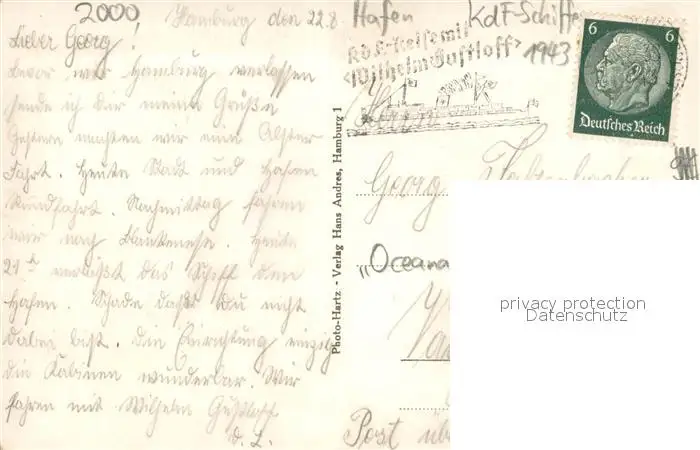 2000
Hamburg den 22.8.
Lieber Georg!
Bevor wir Hamburg verlassen
sende ich Dir meine Grüße
Gestern machten wir eine Alster
Fahrt. Heute Stadt und Hafen
Rundfahrt. Nachmittag fahren
wir nach Blankenese. Heute
21 h verläßt das Schiff den
Hafen. Schade daß Du nicht
dabei bist. Die Einrichtung einzig
die Kabinen wunderbar. Wir
fahren mit Wilhelm Gustloff
Photo-Hartz - Verlag Hans Andres, Hamburg 1
Hafen KdF-Schiffe
1943
KdF Reise mit
"Wilhelm Gustloff"
6 6
Deutsches Reich
Herrn
Georg
"Oceana
Post
privacy protection
Datenschutz